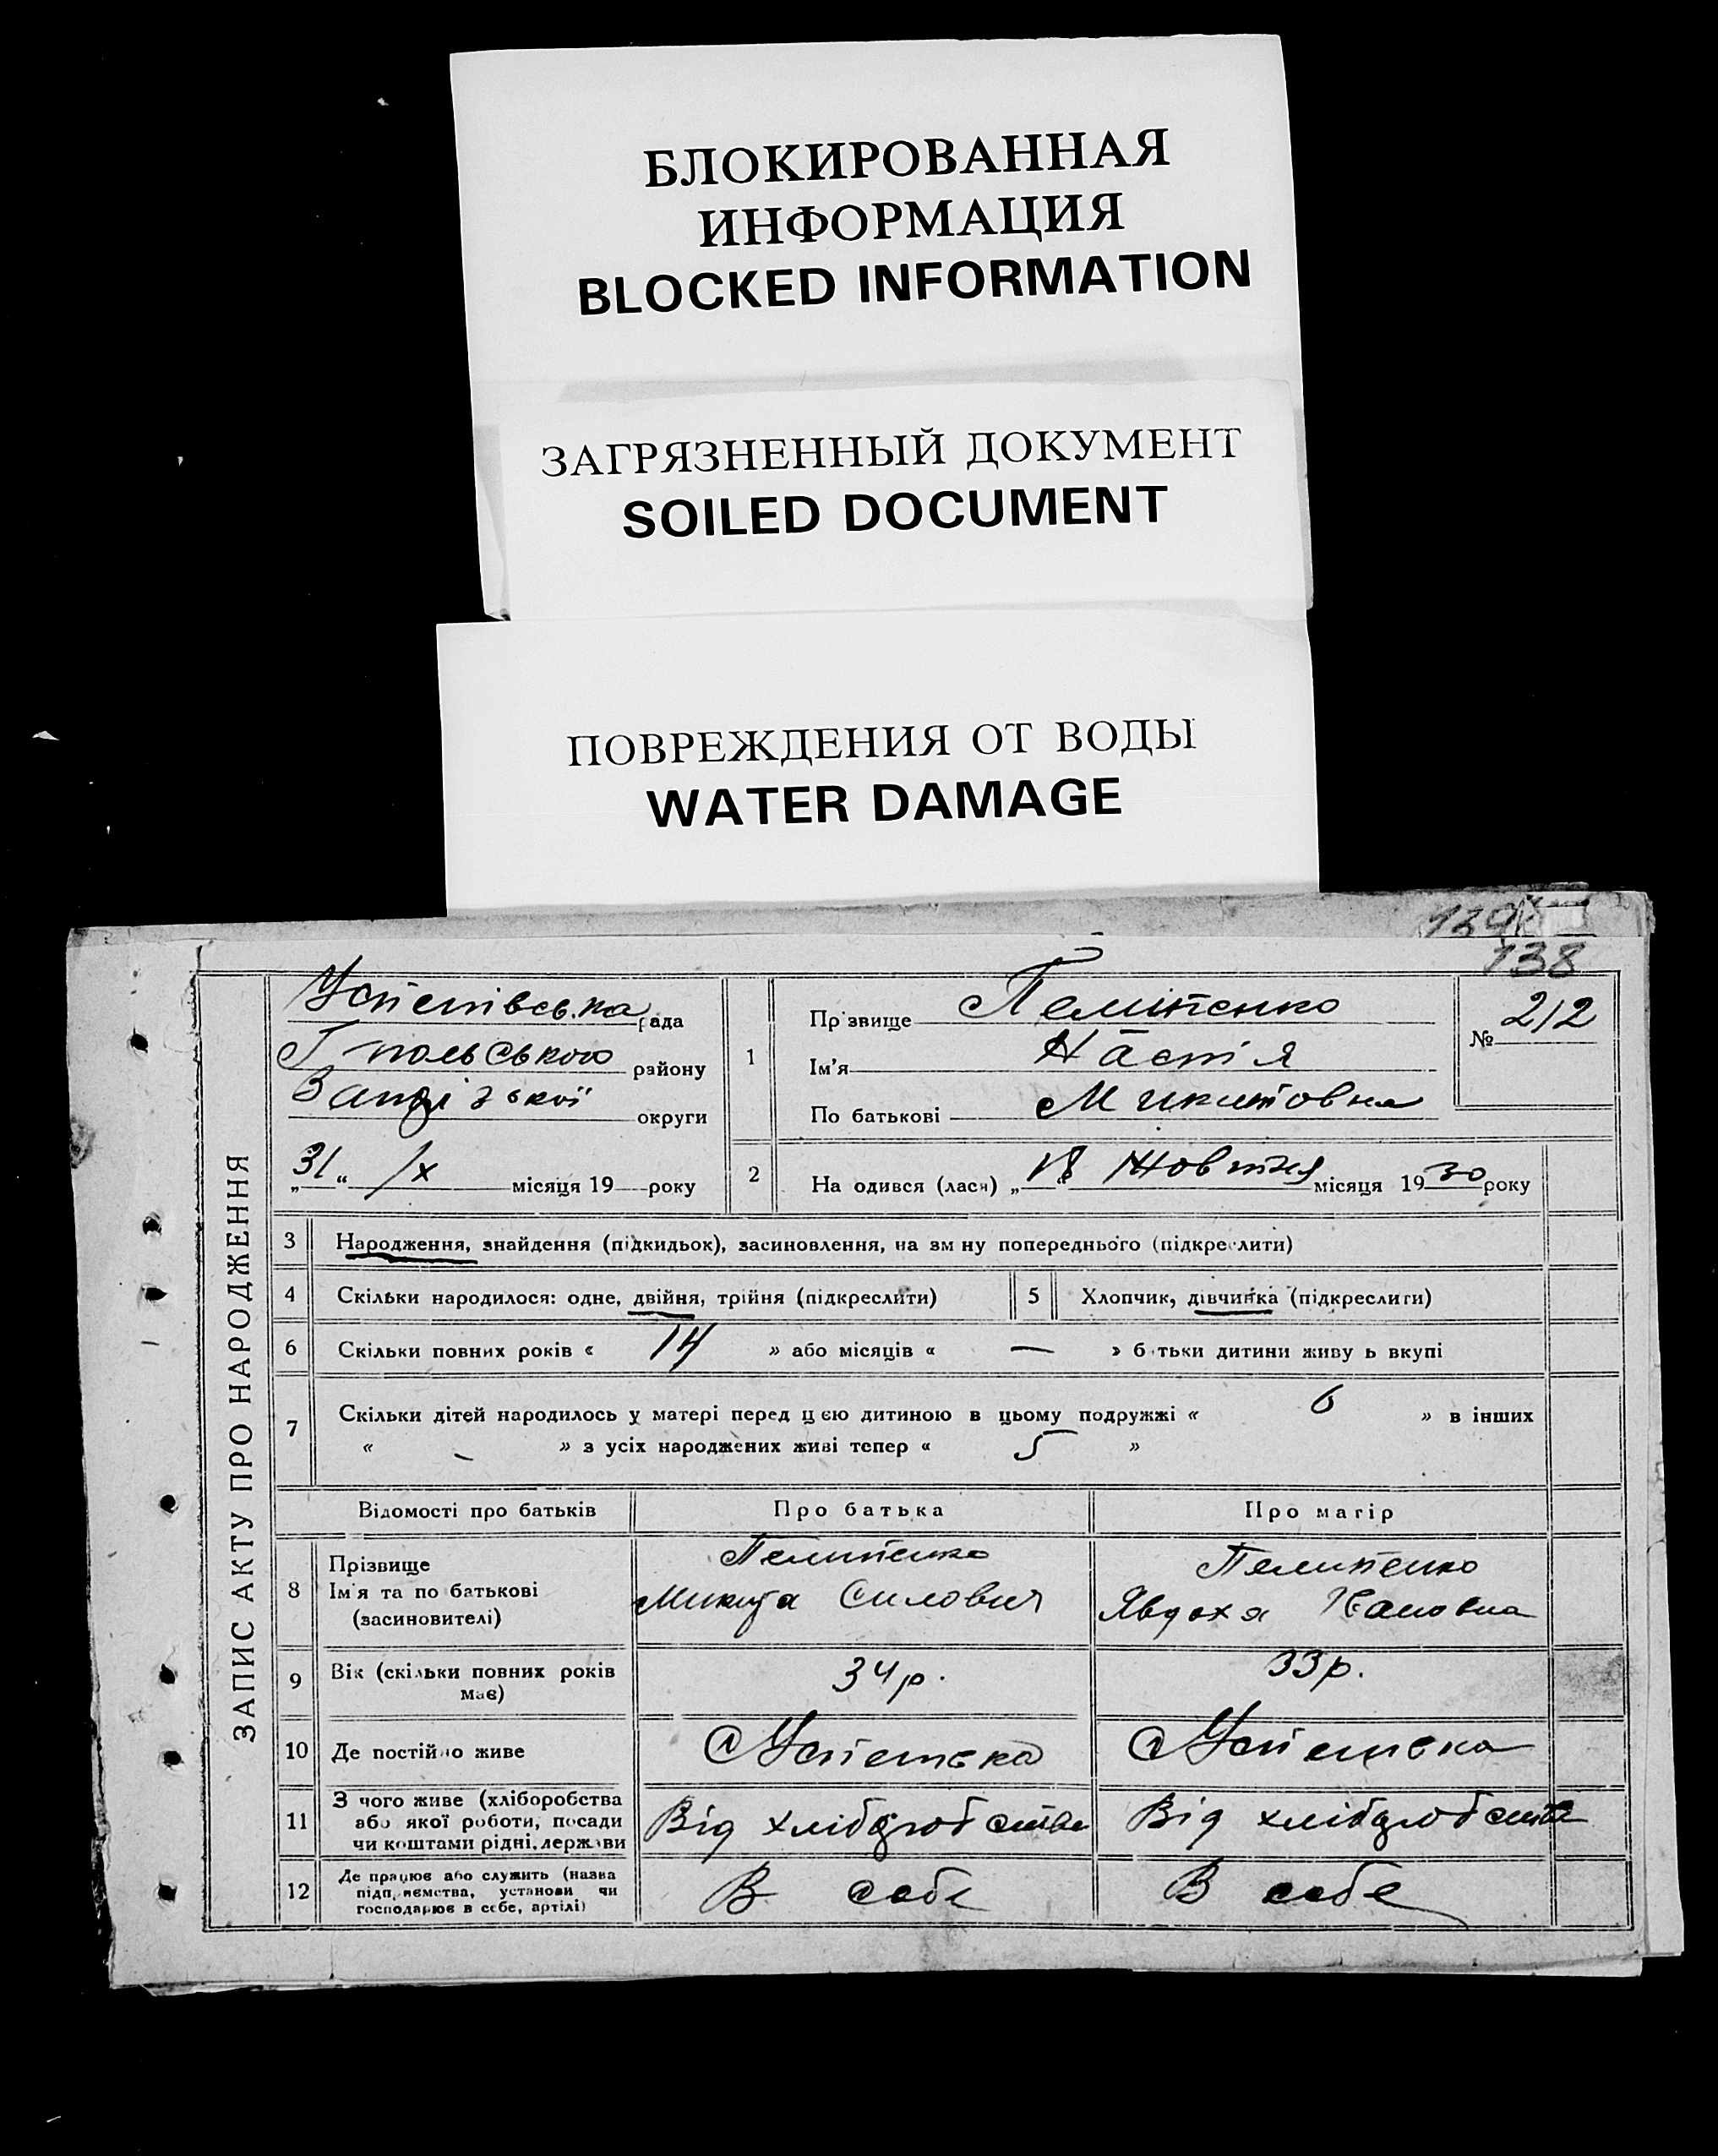 БЛОКИРОВАННАЯ
ИНФОРМАЦИЯ
BLOCKED INFORMATION
ЗАГРЯЗНЕННЫЙ ДОКУМЕНТ
SOILED DOCUMENT
ПОВРЕЖДЕНИЯ ОТ ВОДЫ
WATER DAMAGE
138
ЗАПИС АКТУ ПРО НАРОДЖЕННЯ
рада
району
округи
„31“ /X місяця 19 року
1
Прізвище Пелипенко
Ім'я Настя
По батькові Микитовна
№ 212
2
На одився (лася) „18 Жовтня місяця 1930 року
3 Народження, знайдення (підкидьок), засиновлення, на зм ну попереднього (підкреслити)
4 Скільки народилося: одне, двійня, трійня (підкреслити)
5 Хлопчик, дівчинка (підкреслити)
6 Скільки повних років « 14 » або місяців « — » б тьки дитини живу ь вкупі
7 Скільки дітей народилось у матері перед цією дитиною в цьому подружжі « 6 » в інших
« – » з усіх народжених живі тепер « 5 »
Відомості про батьків
Про батька
Про матір
8 Прізвище
Ім'я та по батькові
(засиновителі)
Пелипенко
Микита Силович
Пелипенко
Явдоха
9 Вік (скільки повних років
має)
34 р.
33 р.
10 Де постійно живе
11 З чого живе (хліборобства
або якої роботи, посади
чи коштами рідні, держави
Від хліборобства
Від хліборобства
12 Де працює або служить (назва
підприємства, установи чи
господарює в себе, артілі)
В себе
В себе